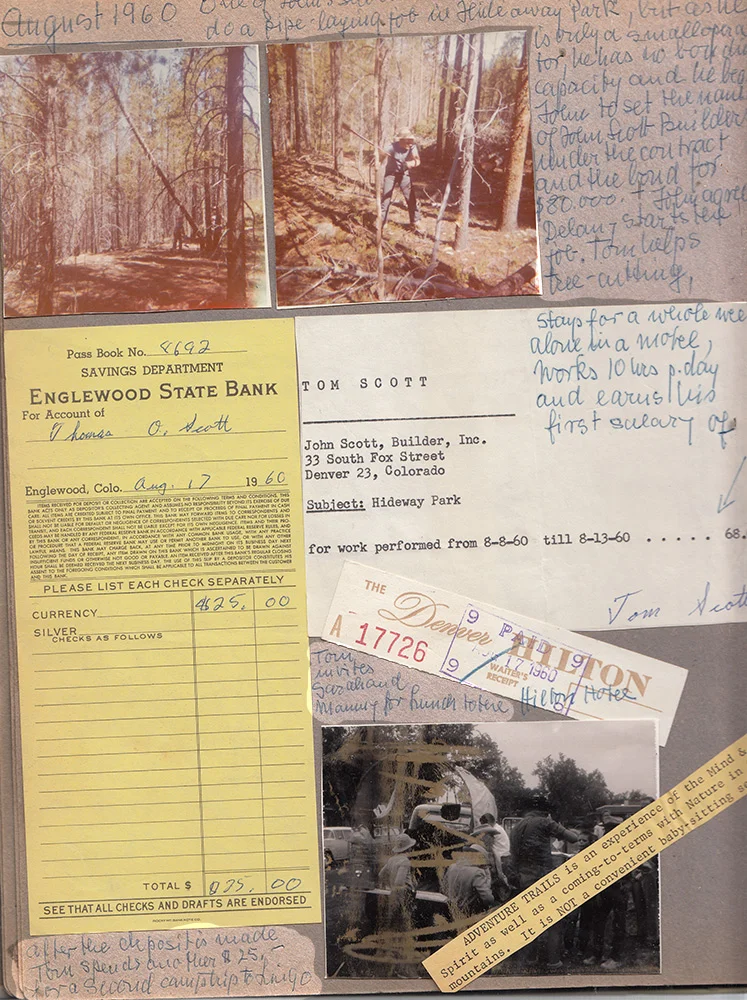 August 1960 One of John's
do a pipe-laying job in Hideaway Park, but as he
is only a small opera
tor he has no bonding
capacity and he beg
John to set the name
of John Scott Builder
under the contract
and the bond for
$80.000. John agree
Delany starts the
job. Tom helps
tree-cutting,
stays for a whole wee
alone in a motel,
works 10 hrs p. day
and earns his
first sulary of
Pass Book No. 8692
SAVINGS DEPARTMENT
ENGLEWOOD STATE BANK
For Account of
Thomas O. Scott
Englewood, Colo. Aug. 17 1960
ITEMS RECEIVED FOR DEPOSIT OR COLLECTION ARE ACCEPTED ON THE FOLLOWING TERMS AND CONDITIONS. THIS
BANK ACTS ONLY AS DEPOSITOR'S COLLECTING AGENT AND ASSUMES NO RESPONSIBILITY BEYOND ITS EXERCISE OF DUE
CARE. ALL ITEMS ARE CREDITED SUBJECT TO FINAL PAYMENT AND TO RECEIPT OF PROCEEDS OF FINAL PAYMENT IN CASH
AND THIS BANK.
PLEASE LIST EACH CHECK SEPARATELY
CURRENCY $25. 00
SILVER
CHECKS AS FOLLOWS
TOTAL $ $25. 00
SEE THAT ALL CHECKS AND DRAFTS ARE ENDORSED
TOM SCOTT
John Scott, Builder, Inc.
33 South Fox Street
Denver 23, Colorado
Subject: Hideway Park
for work performed from 8-8-60 till 8-13-60 . . . . . 68.
Tom Scott
THE
Denver HILTON
A 17726
9 PAID 9
AUG 17 1960
9
WAITER'S
RECEIPT
Hilton Hotel
Tom
invites
Sarah and
Mammy for lunch to the
ADVENTURE TRAILS is an experience of the Mind &
Spirit as well as a coming-to-terms with Nature in
mountains. It is NOT a convenient baby-sitting se
after the deposit is made
Tom spends another $25,-
for a second camp trip to